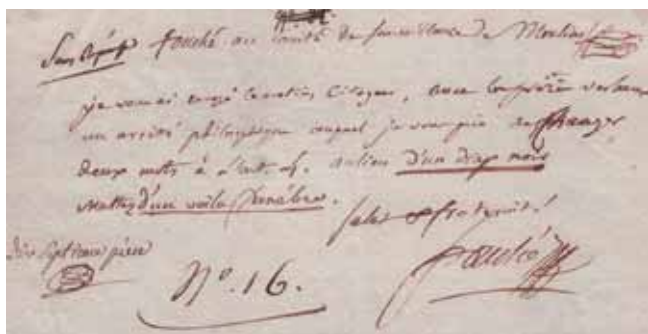 fouché au comité de surveillance de Moulins
je vous ai envoyé ce matin Citoyens, avec
un arrêté philosophique auquel je vous prie de changer
deux mots à l'art. 4. au lieu d'un drap noir
mettez d'un voile funèbre.
salut & fraternité!
dix septieme piece
fouché
N.º 16.